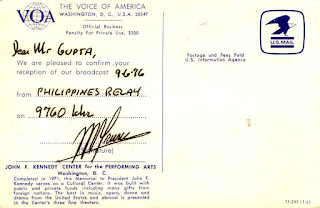 THE VOICE OF AMERICA
WASHINGTON, D. C., U.S.A. 20547
VOA
Official Business
Penalty For Private Use, $300
U.S. MAIL
Dear Mr GUPTA,
We are pleased to confirm your
reception of our broadcast 9-6-76
from PHILIPPINES RELAY
on 9760 khz
Postage and Fees Paid
U.S. Information Agency
(signature)
JOHN F. KENNEDY CENTER for the PERFORMING ARTS
Washington, D. C.
Completed in 1971, this Memorial to President John F.
Kennedy serves as a Cultural Center. It was built with
public and private funds including many gifts from
foreign nations. The best in music, opera, dance and
drama from the United States and abroad is presented
in the Center's three fine theaters.